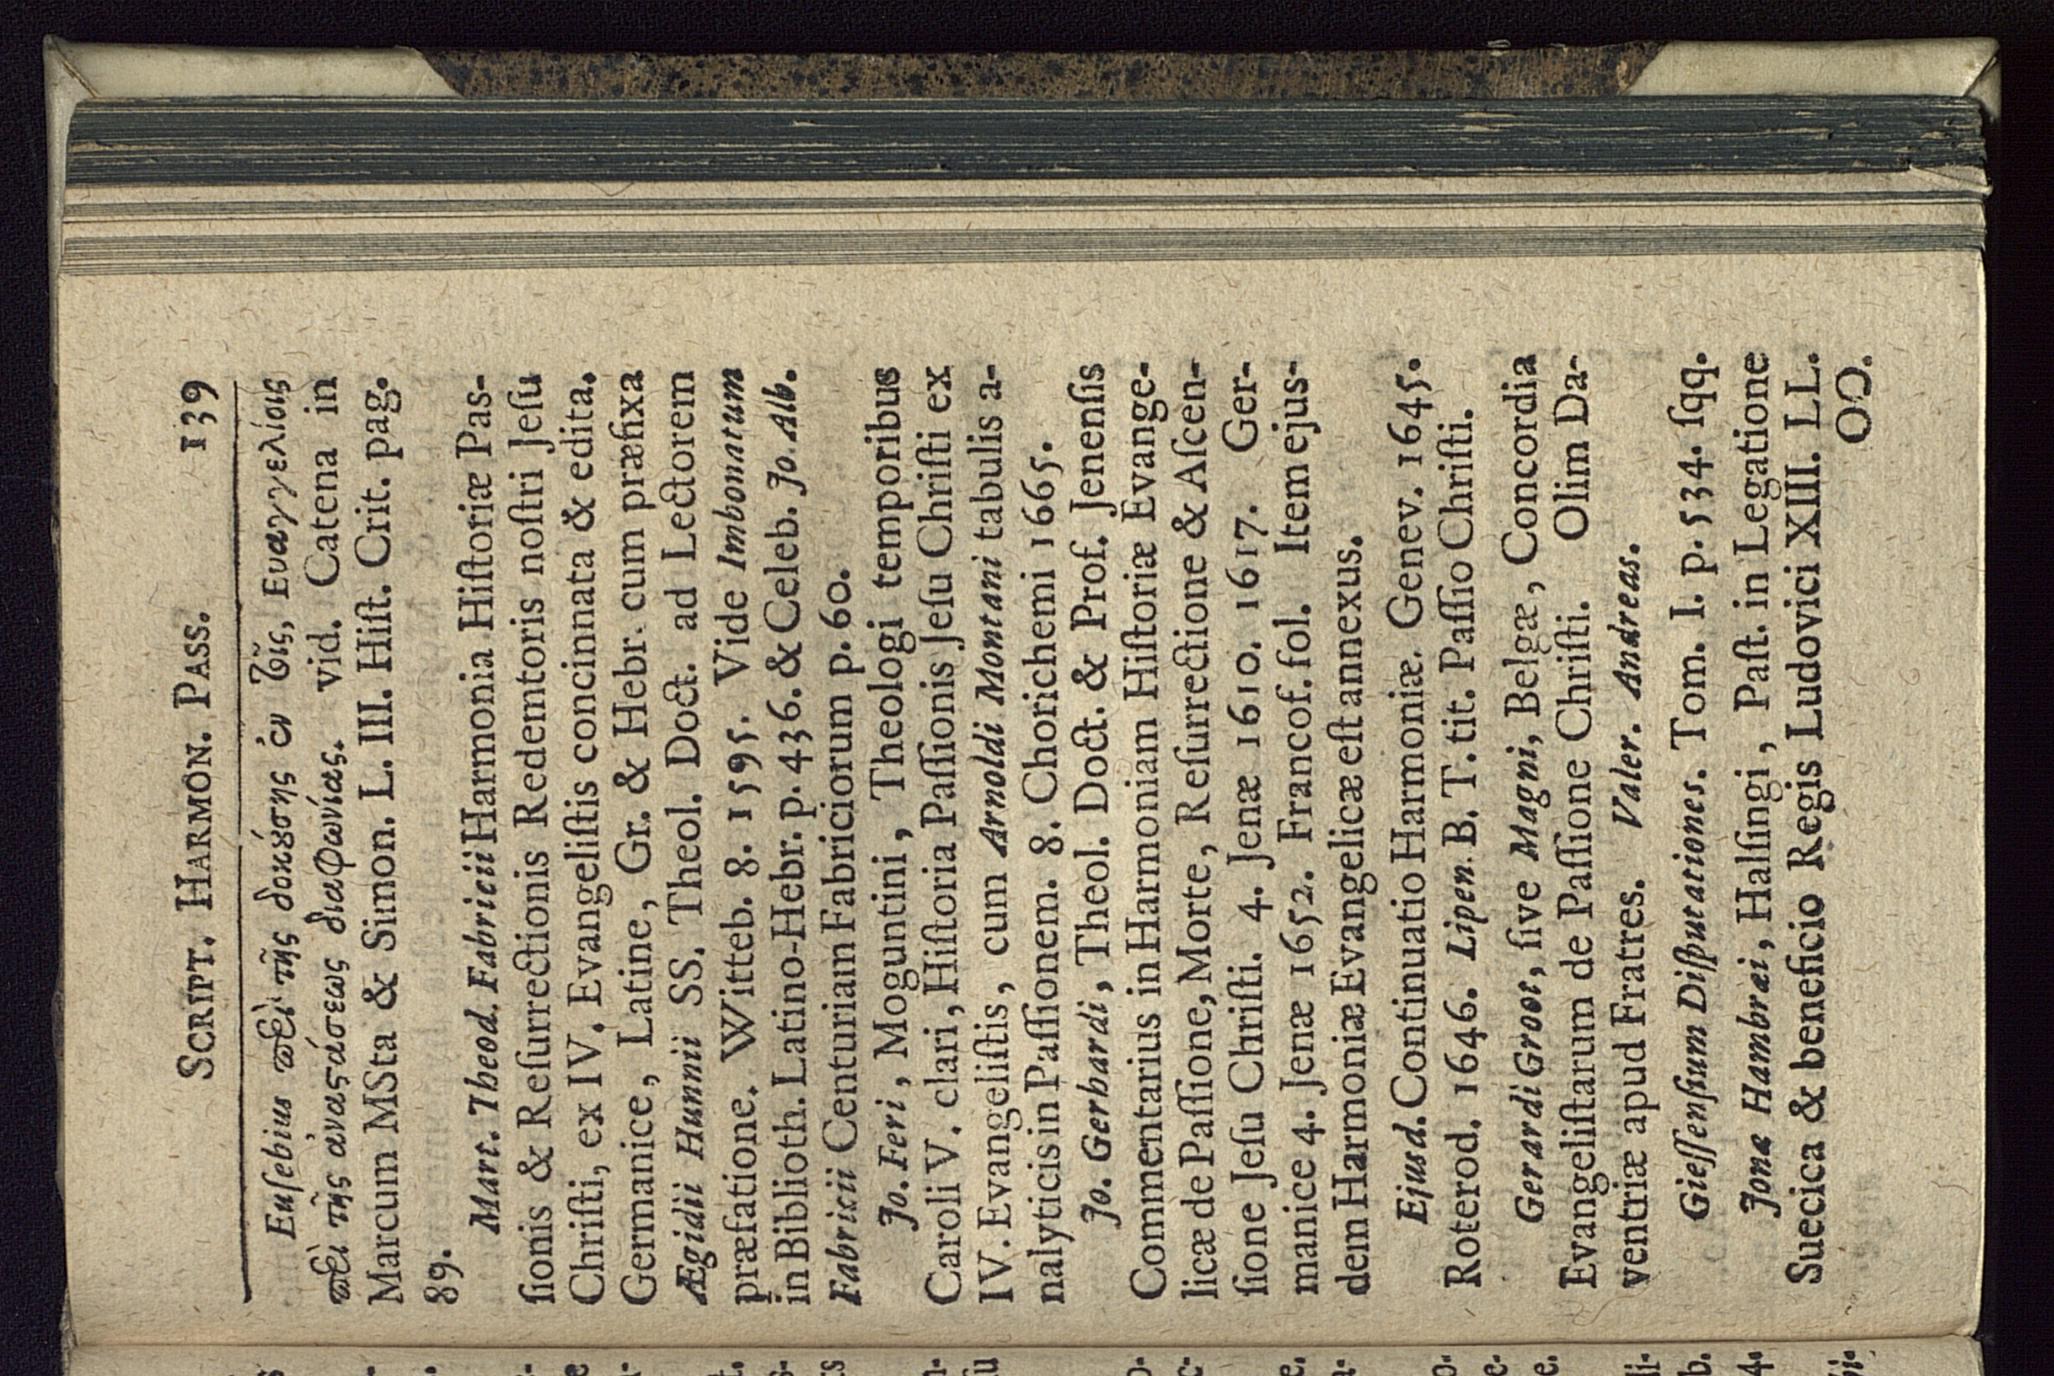 SCRIPT. HARMON. PASS. 139
Euſebius περὶ τῆς δοκούσης ἐν τοῖς, Ευαγγελίοις
περὶ τῆς ἀναςάσεως διαφωνίας. vid. Catena in
Marcum MSta & Simon. L. III. Hiſt. Crit. pag.
89.
Mart. Theod. Fabricii Harmonia Hiſtoriæ Pas-
ſionis & Reſurrectionis Redemtoris noſtri Jeſu
Chriſti, ex IV. Evangeliſtis concinnata & edita.
Germanice, Latine, Gr. & Hebr. cum præfixa
Ægidii Hunnii SS. Theol. Doct. ad Lectorem
præfatione. Witteb. 8. 1595. Vide Imbonatum
in Biblioth. Latino-Hebr. p. 436. & Celeb. Jo. Alb.
Fabricii Centuriam Fabriciorum p. 60.
Jo. Feri, Moguntini, Theologi temporibus
Caroli V. clari, Hiſtoria Paſſionis Jeſu Chriſti ex
IV. Evangeliſtis, cum Arnoldi Montani tabulis a-
nalyticis in Paſſionem. 8. Chorichemi 1665.
Jo. Gerhardi, Theol. Doct. & Prof. Jenenſis
Commentarius in Harmoniam Hiſtoriæ Evange-
licæ de Paſſione, Morte, Reſurrectione & Aſcen-
ſione Jeſu Chriſti. 4. Jenæ 1610. 1617. Ger-
manice 4. Jenæ 1652. Francof. fol. Item ejus-
dem Harmoniæ Evangelicæ eſt annexus.
Ejusd. Continuatio Harmoniæ. Genev. 1645.
Roterod. 1646. Lipen. B. T. tit. Paſſio Chriſti.
Gerardi Groot, ſive Magni, Belgæ, Concordia
Evangeliſtarum de Paſſione Chriſti. Olim Da-
ventriæ apud Fratres. Valer. Andreas.
Gieſſenſium Diſputationes. Tom. I. p. 534. ſqq.
Jonæ Hambræi, Halſingi, Paſt. in Legatione
Suecica & beneficio Regis Ludovici XIII. LL.
OO.